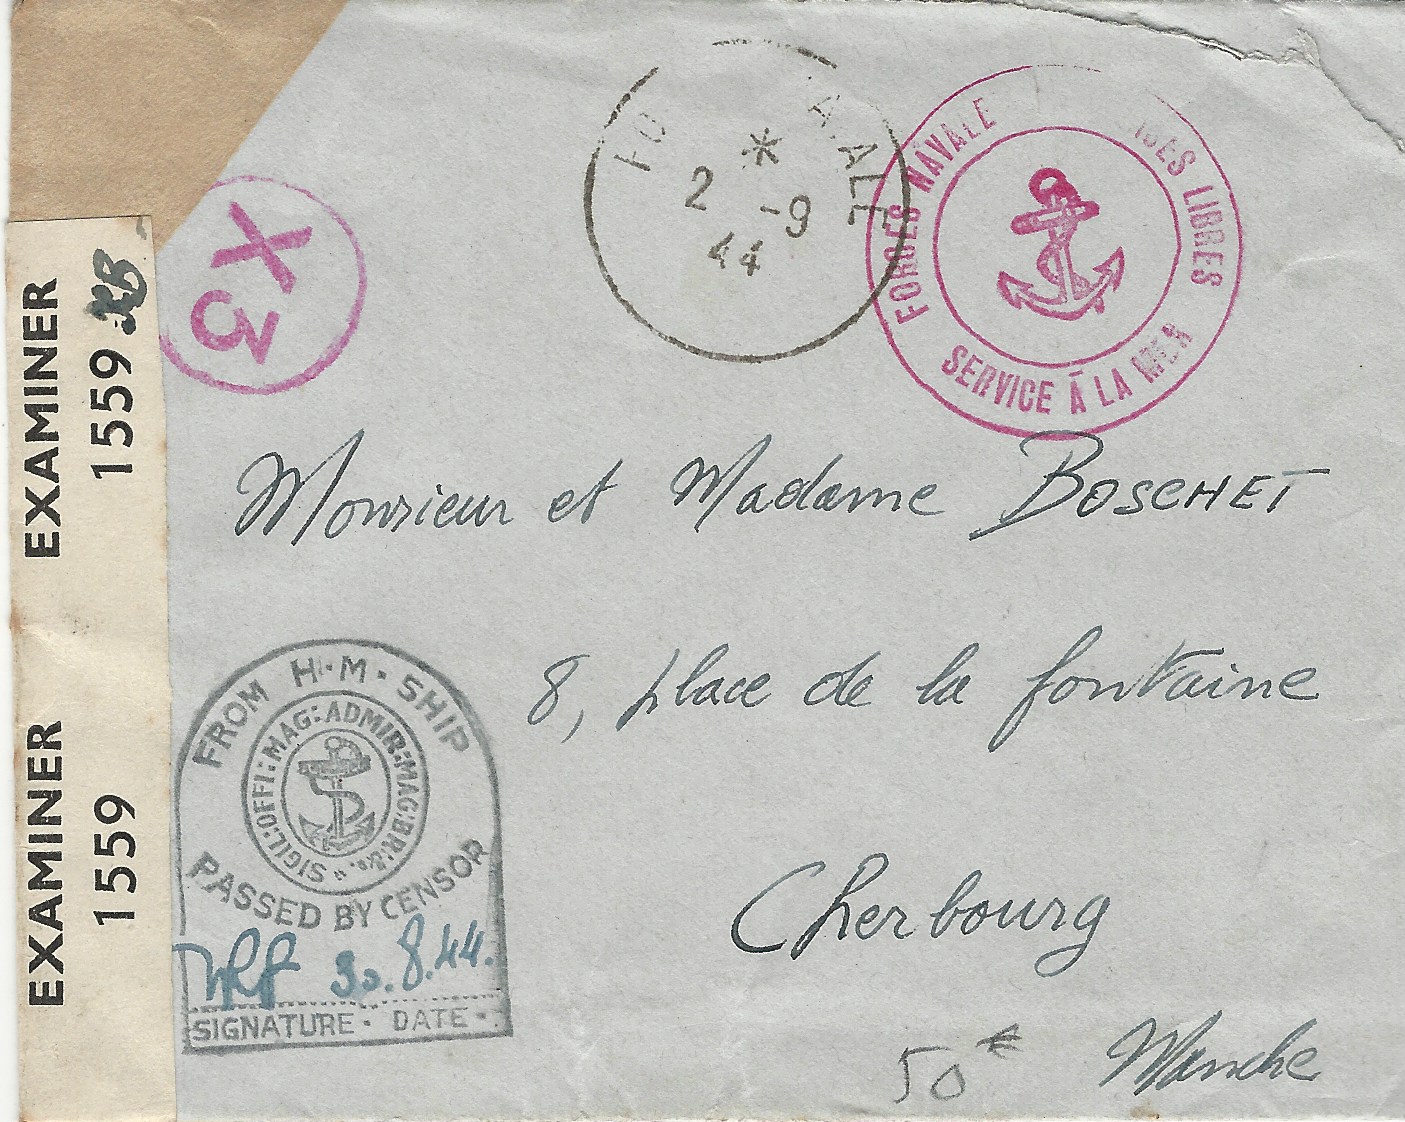 EXAMINER
1559
EXAMINER
1559
X3
2 -9
44
FORCES NAVALE LIBRES
SERVICE À LA MER
Monsieur et Madame BOSCHET
8, place de la fontaine
Cherbourg
Manche
FROM H·M·SHIP
SIGIL:OFFI:MAG:ADMIR:MAG:BR:&c.
PASSED BY CENSOR
30.8.44.
SIGNATURE · DATE ·
50 €